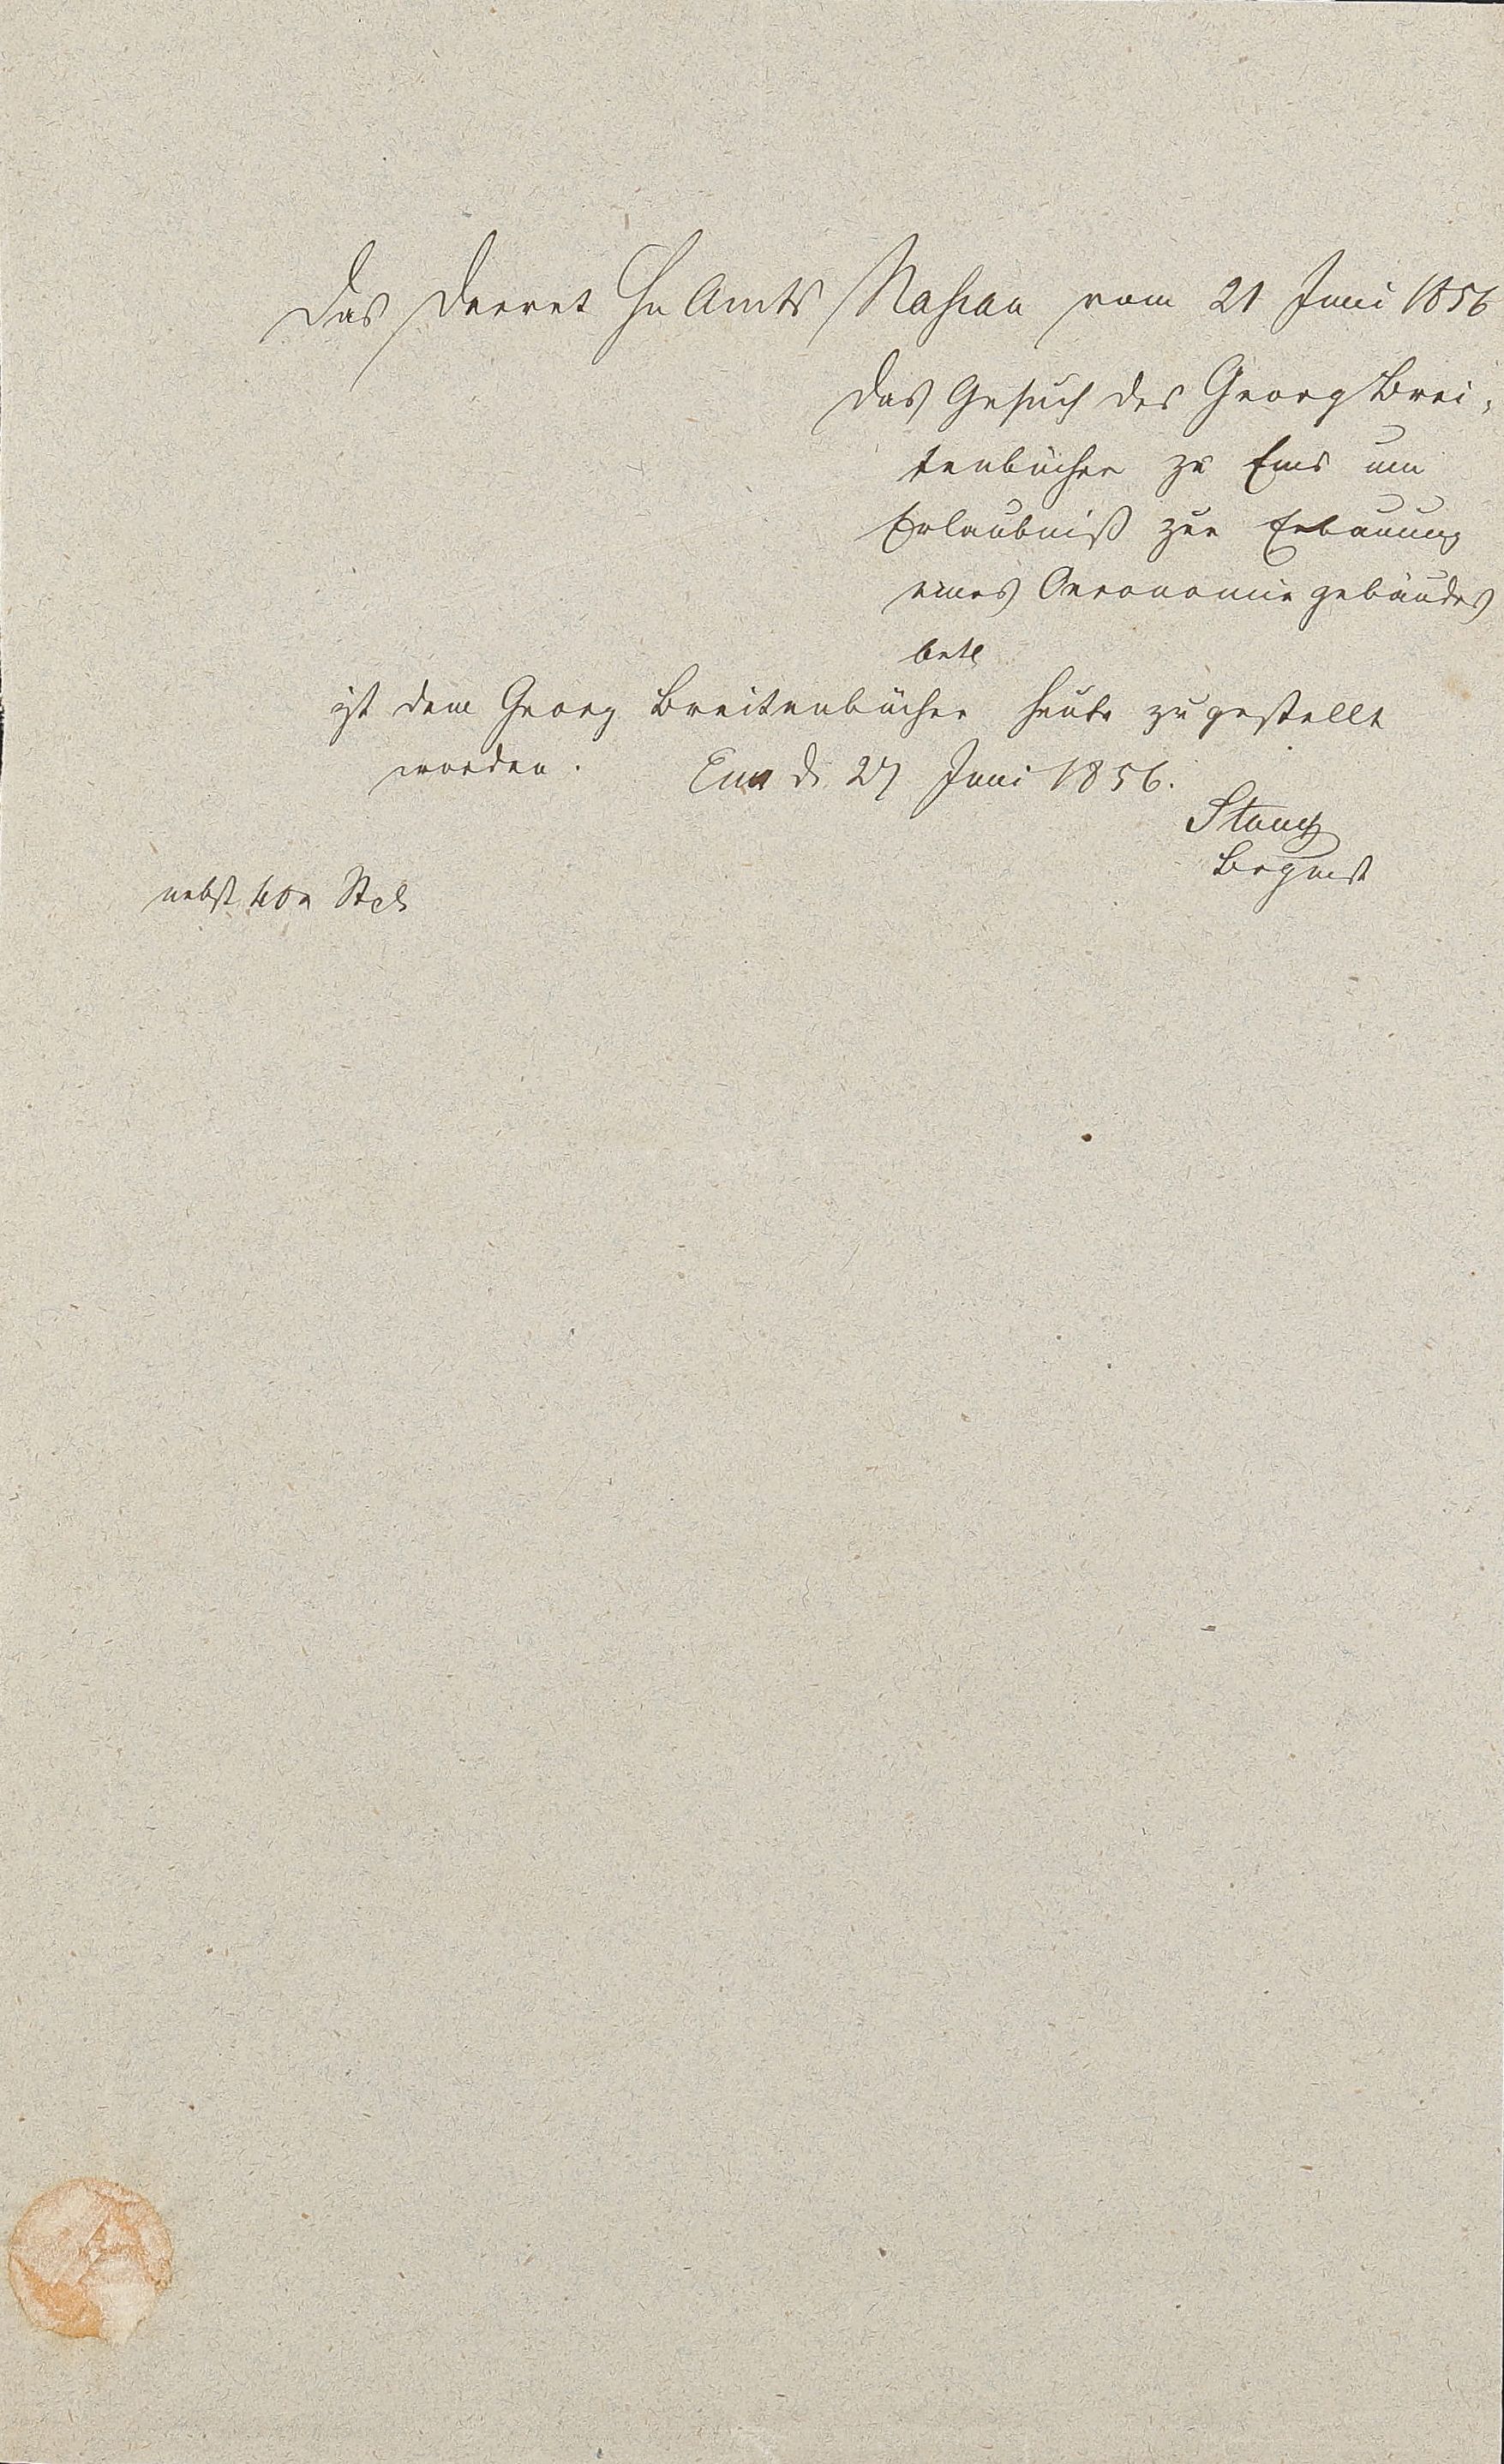 Das Decret Hn Amts Nassau vom 21 Juni 1856
das Gesuch des Georg Brei-
tenbücher zu Ems um
Erlaubniß zur Erbauung
eines Oeconomiegebäudes
betr
ist dem Georg Breitenbücher heute zugestellt
worden. Ems d. 27 Juni 1856.
Stang
nebst